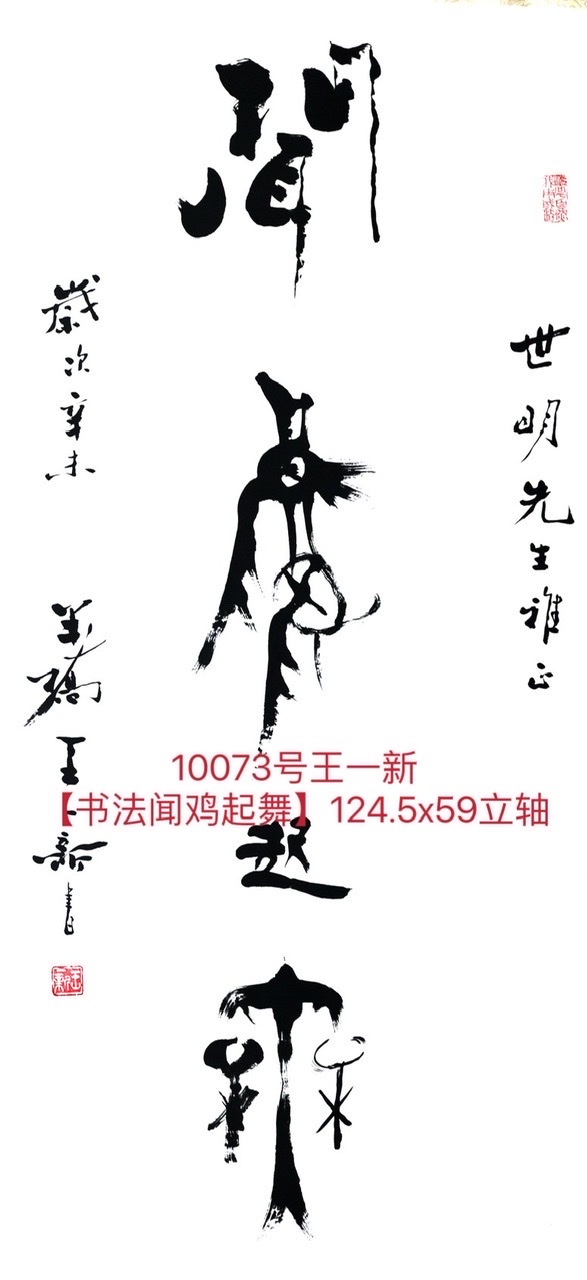 世明先生雅正
聞鷄起舞
歲次辛未
王一新書
10073号王一新
【书法闻鸡起舞】124.5x59立轴